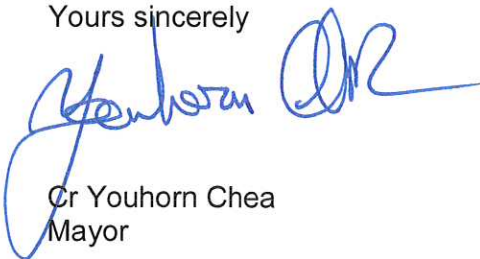 Yours sincerely
Youhorn
Cr Youhorn Chea
Mayor